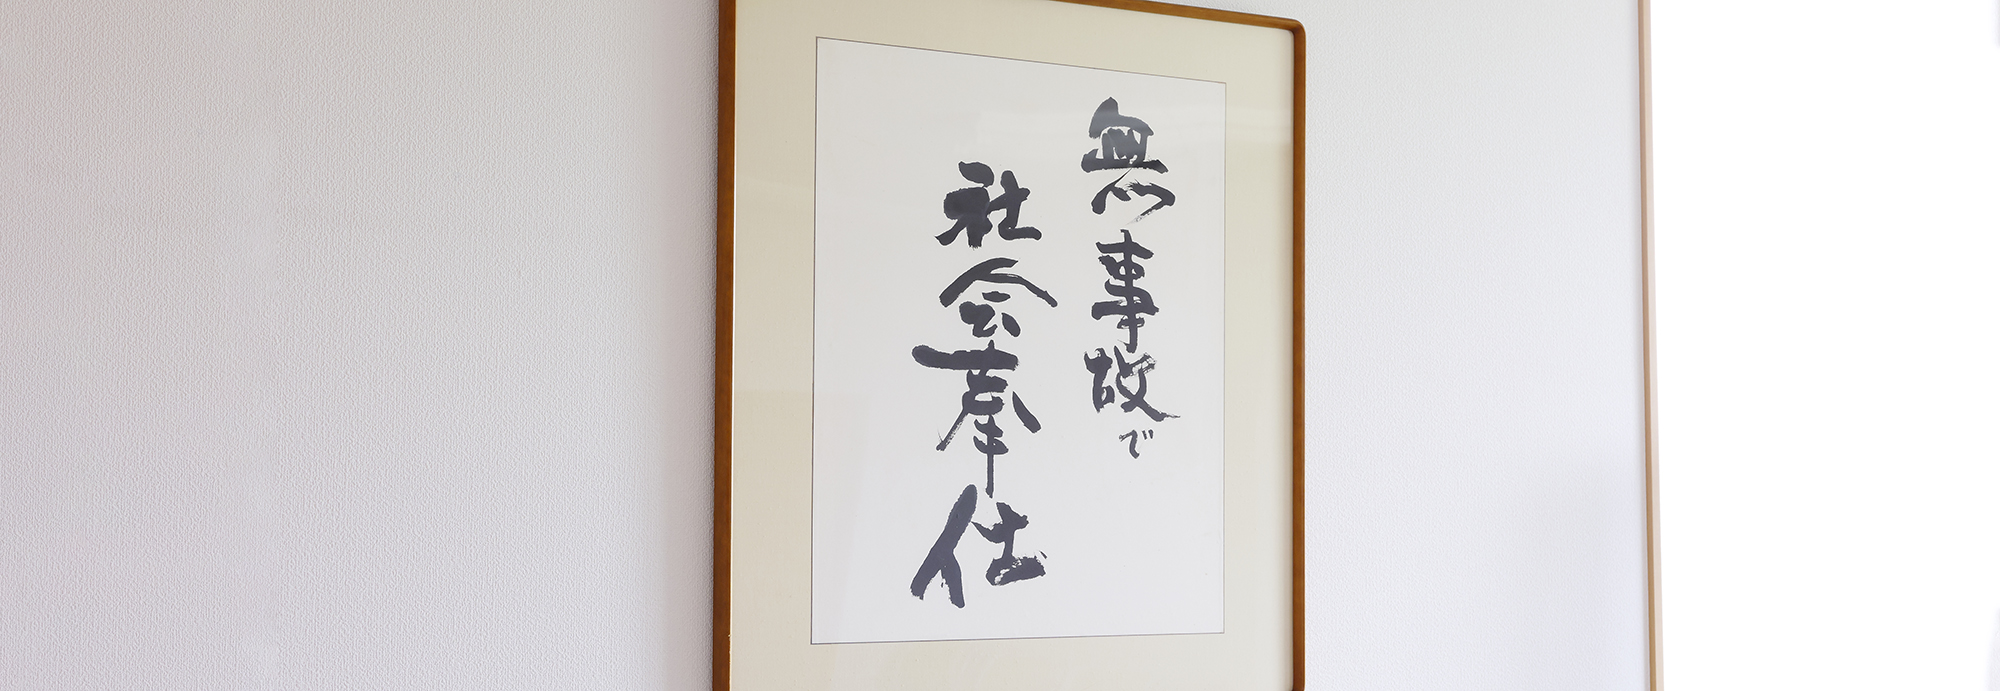 無事故で
社会奉仕